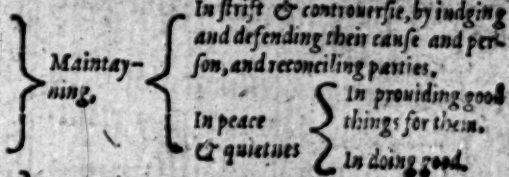 In ſtrife & controuerſie, by iudging
and defending their cauſe and per-
ſon, and reconciling parties.
Maintay-
ning.
In peace
& quietnes
In prouiding good
things for them.
In doing good.